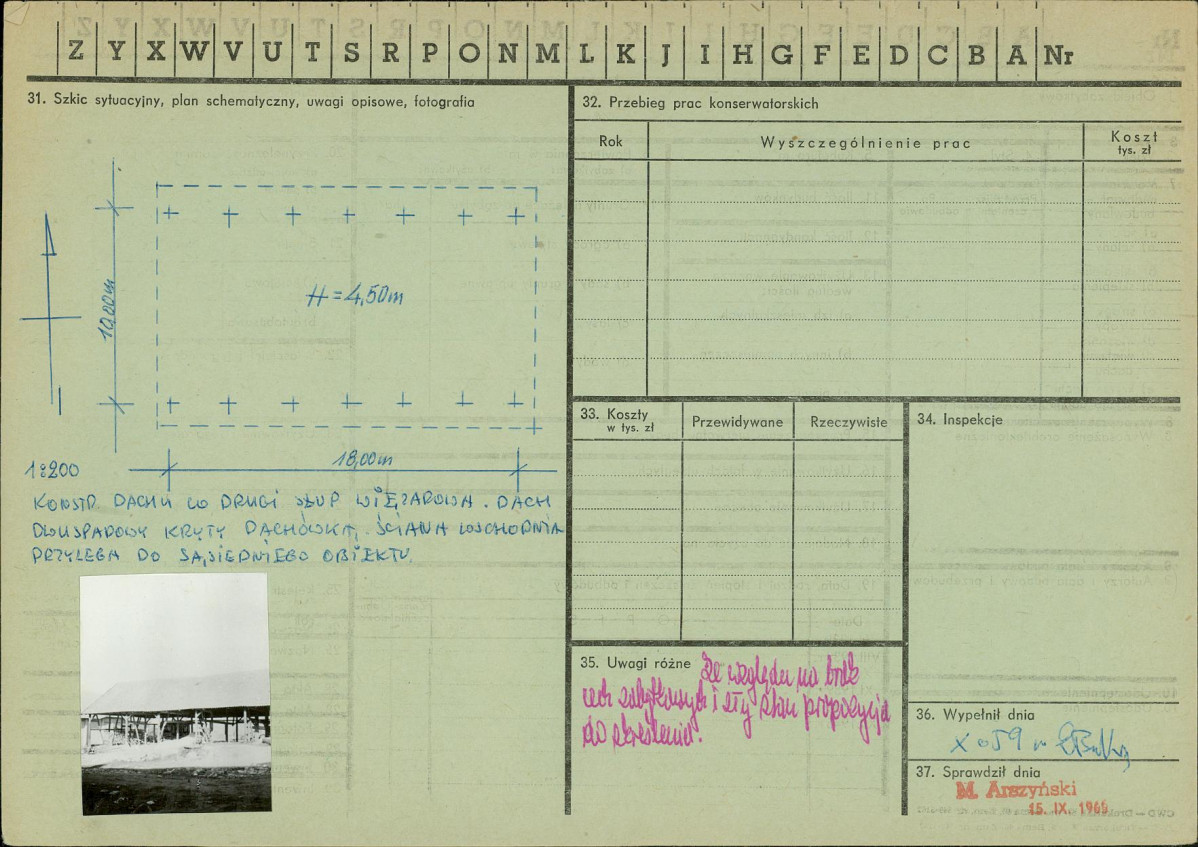 Z Y X W V U T S R P O N M L K J I H G F E D C B A Nr
31. Szkic sytuacyjny, plan schematyczny, uwagi opisowe, fotografia
10,00m
H = 4,50m
18,00m
1:200
KONSTR. DACHU CO DRUGI SŁUP WIĘZAROWA. DACH
DWUSPADOWY KRYTY DACHÓWKĄ, ŚCIANA WSCHODNIA
PRZYLEGA DO SĄSIEDNIEGO OBIEKTU.
32. Przebieg prac konserwatorskich
Rok
Wyszczególnienie prac
Koszt
tys. zł
33. Koszty
w tys. zł
Przewidywane
Rzeczywiste
34. Inspekcje
35. Uwagi różne Ze względu na brak
cech zabytkowych i zły stan propozycja
do skreślenia.
36. Wypełnił dnia
X 59 r
37. Sprawdził dnia
M. Arszyński
15. IX. 1969